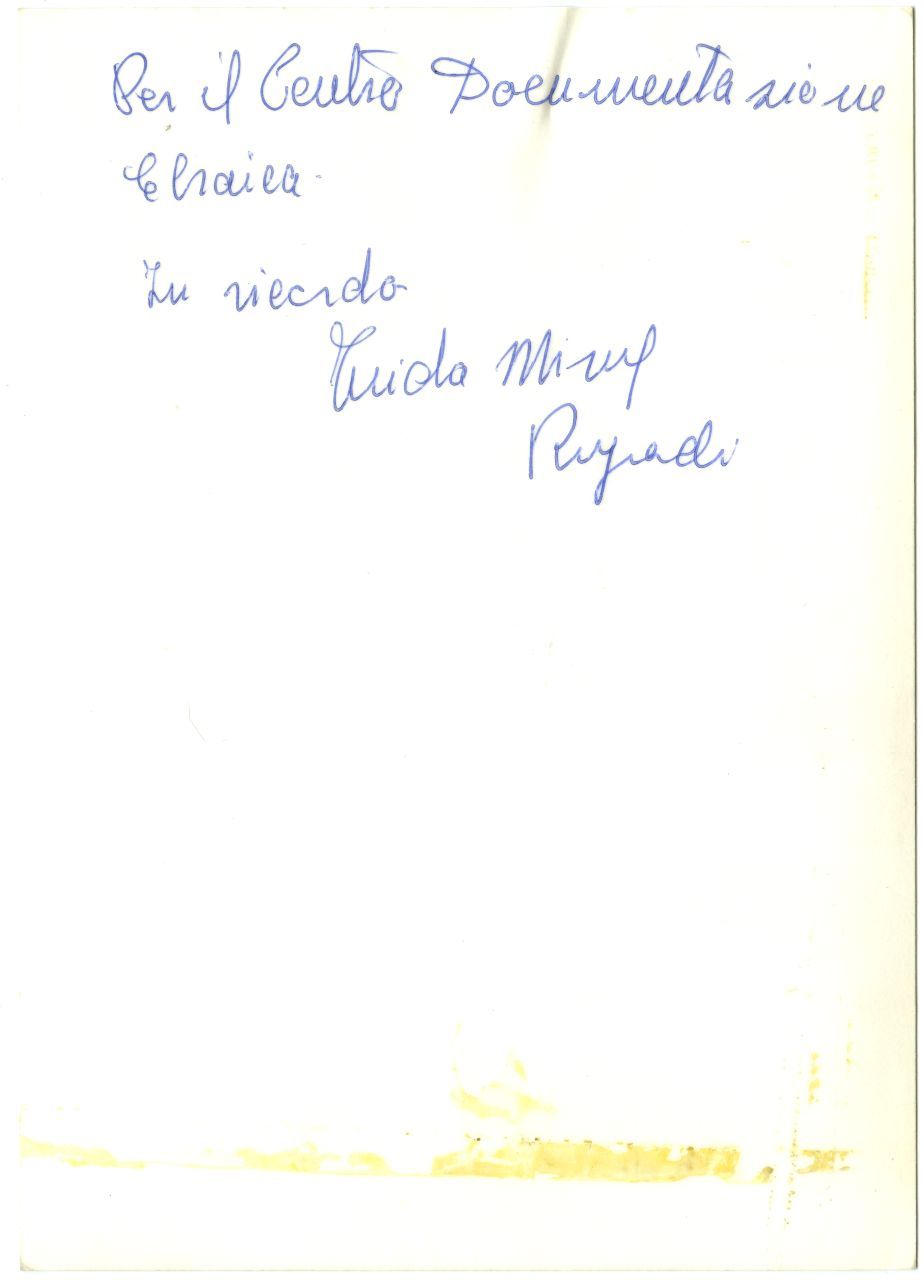 Per il Centro Documentazione
Ebraica.
In ricordo
Guida